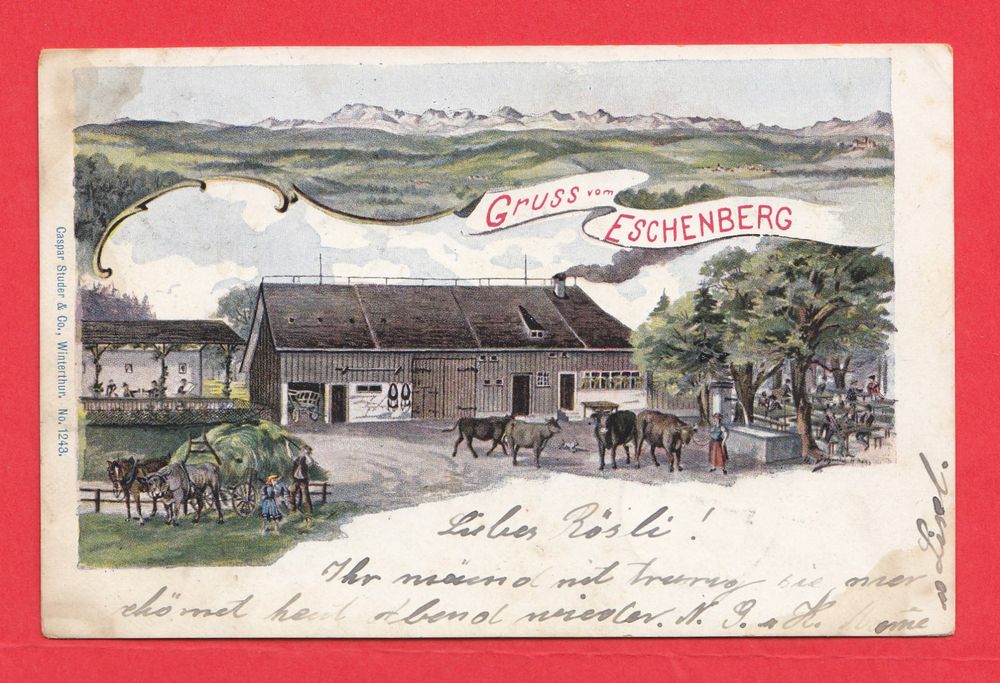 Gruss vom
ESCHENBERG
Caspar Studer & Co., Winterthur. No. 1243.
Liebes Rösli!
Ihr müend nit trurig sie, mer
chömet heut Abend wieder. N. G. u H.
u Lisel.